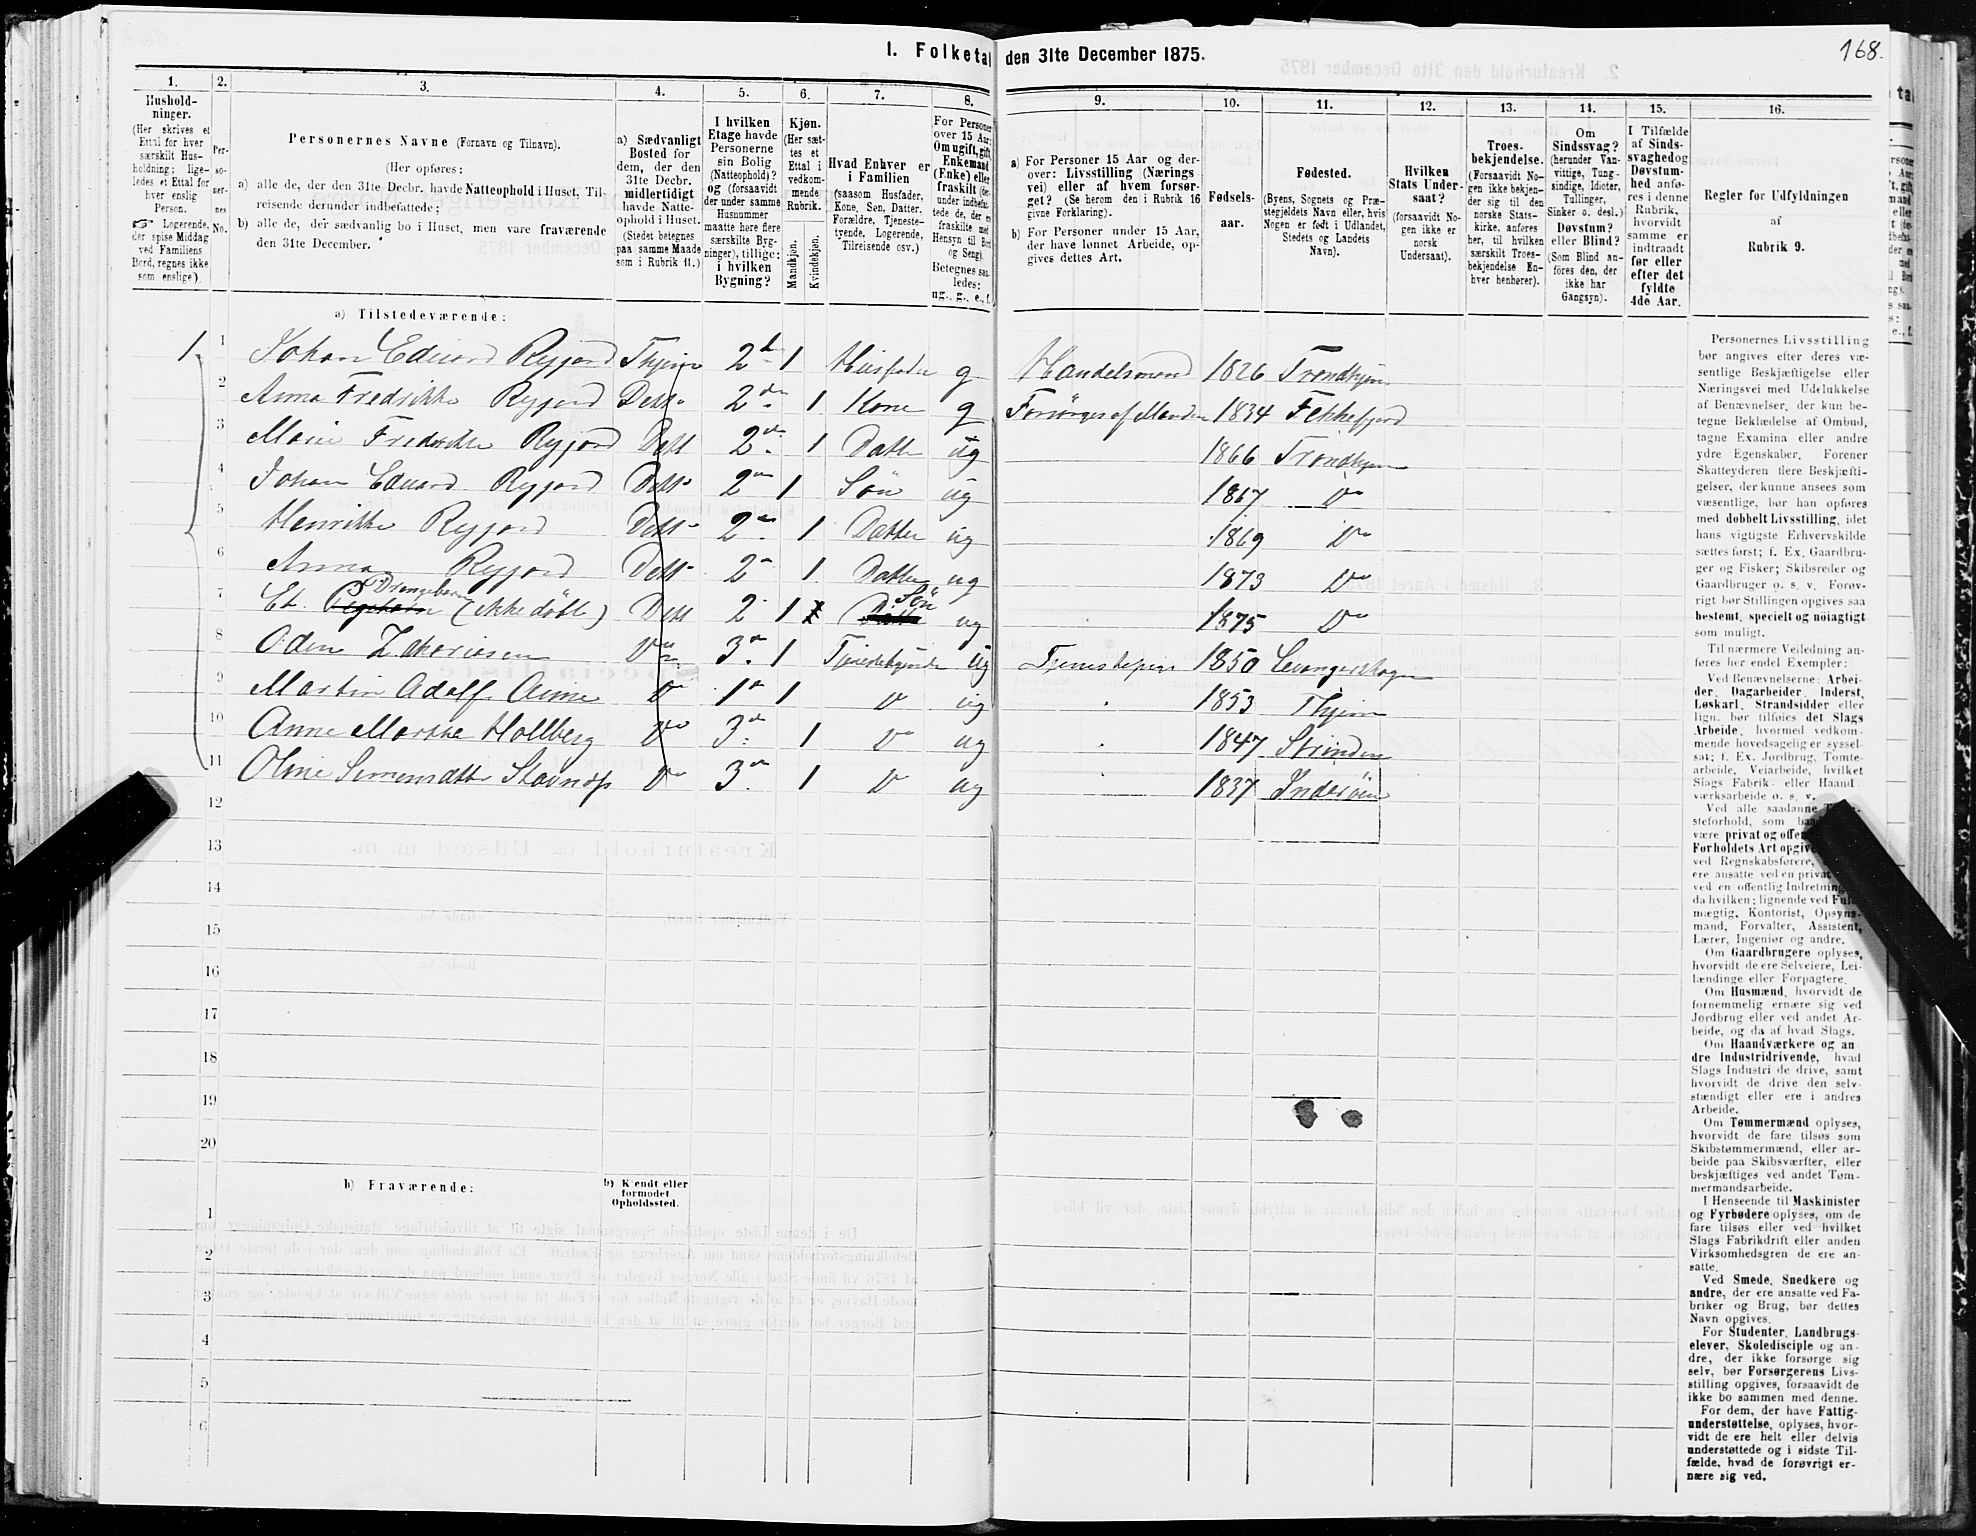 168.
I. Folketal den 31te December 1875.
1. 2. 3. 4. 5. 6. 7. 8. 9. 10. 11. 12. 13. 14. 15. 16.
Hushold-
ninger.
(Her skrives et
Ettal for hver
særskilt Hus-
holdning; lige-
ledes et Ettal for
hver enslig
Person.
☞ Logerende,
der spise Middag
ved Familiens
Bord, regnes ikke
som enslige).
Per-
so-
ner-
nes
No.
Personernes Navne (Fornavn og Tilnavn).
(Her opføres:
a) alle de, der den 31te Decbr. havde Natteophold i Huset, Til-
reisende derunder indbefattede;
b) alle de, der sædvanlig bo i Huset, men vare fraværende
den 31te December.
a) Sædvanligt
Bosted for
dem, der den
31te Decbr.
midlertidigt
havde Natte-
ophold i Huset.
(Stedet betegnes
paa samme Maade
som i Rubrik 11.)
I hvilken
Etage havde
Personerne
sin Bolig
(Natteophold)?
og (forsaavidt
der under samme
Husnummer
maatte høre flere
særskilte Byg-
ninger), tillige:
i hvilken
Bygning?
Kjøn.
(Her sæt-
tes et
Ettal i
vedkom-
mende
Rubrik.
Mandkjøn.
Kvindekjøn.
Hvad Enhver er
i Familien
(saasom Husfader,
Kone, Søn, Datter,
Forældre, Tjeneste-
tyende, Logerende,
Tilreisende osv.)
For Personer
over 15 Aar:
Om ugift, gift,
Enkemand
(Enke) eller
fraskilt (der-
under indbefat-
tede de, der ere
fraskilte med
Hensyn til Bord
og Seng).
Betegnes saa-
ledes:
ug., g., e., f.
a) For Personer 15 Aar og der-
over: Livsstilling (Nærings
vei) eller af hvem forsør-
get? (Se herom den i Rubrik 16
givne Forklaring).
b) For Personer under 15 Aar,
der have lønnet Arbeide, op-
gives dettes Art.
Fødsels-
aar.
Fødested.
(Byens, Sognets og Præ-
stegjeldets Navn eller, hvis
Nogen er født i Udlandet,
Stedets og Landets
Navn).
Hvilken
Stats Under-
saat?
(forsaavidt No-
gen ikke er
norsk
Undersaat).
Troes-
bekjendelse.
(Forsaavidt No-
gen ikke bekjen-
der sig til den
norske Stats-
kirke, anføres
her, til hvilken
særskilt Troes-
bekjendelse En-
hver henhører).
Om
Sindssvag?
(herunder Van-
vittige, Tung-
sindige, Idioter,
Tullinger,
Sinker o. desl.)
Døvstum?
eller Blind?
(Som Blind an-
føres den, der
ikke har
Gangsyn).
I Tilfælde
af Sinds-
svaghedog
Døvstum-
hed anfø-
res i denne
Rubrik,
hvorvidt
samme er
indtraadt
før eller
efter det
fyldte
4de Aar.
Regler for Udfyldningen
af
Rubrik 9.
a) Tilstedeværende:
1 1 Johan Eduard Ryjord Thjem 2de 1 Husfader g Handelsmand 1826 Trondhjem
2 Anna Fredrikke Ryjord Dett 2de 1 Kone g Forsørges af Manden 1834 Fekkefjord
3 Marie Fredrikke Ryjord Dett 2de 1 Datter ug 1866 Trondhjem
4 Johan Eduard Ryjord Dett 2de 1 Søn ug 1867 Do
5 Henrikke Ryjord Dett 2de 1 Datter ug 1869 Do
6 Anna Ryjord Dett 2 1 Datter ug 1873 Do
7 Et Drengebarn (ikke døbt) Dett 2 1 Søn ug 1875 Do
8 Oden Zakariasen Do 3 1 Tjenestetyende ug Tjenestepige 1850 Levangerskogn
9 Martin Adolf Do 1 1 Do ug 1853 Thjem
10 Anne Marthe Hollberg Do 3 1 Do ug 1847 Strinden
11 Oline Simensdatter Do 3 1 Do ug 1837 Inderøen
12
13
14
15
16
17
18
19
20
b) Fraværende:
b) Kjendt eller
formodet
Opholdssted.
1
2
3
4
5
6
Personernes Livsstilling
bør angives efter deres væ-
sentlige Beskjæftigelse eller
Næringsvei med Udelukkelse
af Benævnelser, der kun be-
tegne Beklædelse af Ombud,
tagne Examina eller andre
ydre Egenskaber. Forener
Skatteyderen flere Beskjæfti-
gelser, der kunne ansees som
væsentlige, bør han opføres
med dobbelt Livsstilling, idet
hans vigtigste Erhvervskilde
sættes først; f. Ex. Gaardbru-
ger og Fisker; Skibsreder og
Gaardbruger o. s. v. Forøv-
rigt bør Stillingen opgives saa
bestemt, specielt og nøiagtigt
som muligt.
Til nærmere Veiledning an-
føres her endel Exempler:
Ved Benævnelserne: Arbei-
der, Dagarbeider, Inderst,
Løskarl, Strandsidder eller
lign. bør tilføies det Slags
Arbeide, hvormed vedkom-
mende hovedsagelig er syssel-
sat; f. Ex. Jordbrug, Tomte-
arbeide, Veiarbeide, hvilket
Slags Fabrik- eller Haand
værksarbeide o. s. v.
Ved alle saadanne
steforhold, som
være privat og
Forholdets Art
ved Regnskabsførere,
ere ansatte ved en privat
ved en offentlig Indretning
da hvilken; lignende ved
mægtig, Kontorist, Opsyns-
mand, Forvalter, Assistent,
Lærer, Ingeniør og andre.
Om Gaardbrugere oplyses,
hvorvidt de ere Selveiere, Lei-
lændinge eller Forpagtere.
Om Husmænd, hvorvidt de
fornemmelig ernære sig ved
Jordbrug eller ved andet Ar-
beide, og da af hvad Slags.
Om Haandværkere og an
dre Industridrivende, hvad
Slags Industri de drive, samt
hvorvidt de drive den selv-
stændigt eller ere i andres
Arbeide.
Om Tømmermænd oplyses,
hvorvidt de fare tilsøs som
Skibstømmermænd, eller ar-
beide paa Skibsværfter, eller
beskjæftiges ved andet Tøm-
mermandsarbeide.
I Henseende til Maskinister
og Fyrbødere oplyses, om de
fare tilsøs eller ved hvilket
Slags Fabrikdrift eller anden
Virksomhedsgren de ere an-
satte.
Ved Smede, Snedkere og
andre, der ere ansatte ved Fa-
briker og Brug, bør dettes
Navn opgives.
For Studenter, Landbrugs-
elever, Skoledisciple og an-
dre, der ikke forsørge sig
selv, bør Forsørgerens Livs-
stilling opgives, forsaavidt de
ikke bo sammen med denne.
For dem, der have Fattig-
understøttelse, oplyses, hvor-
vidt de ere helt eller delvis
understøttede og i sidste Til-
fælde, hvad de forøvrigt er-
nære sig ved.